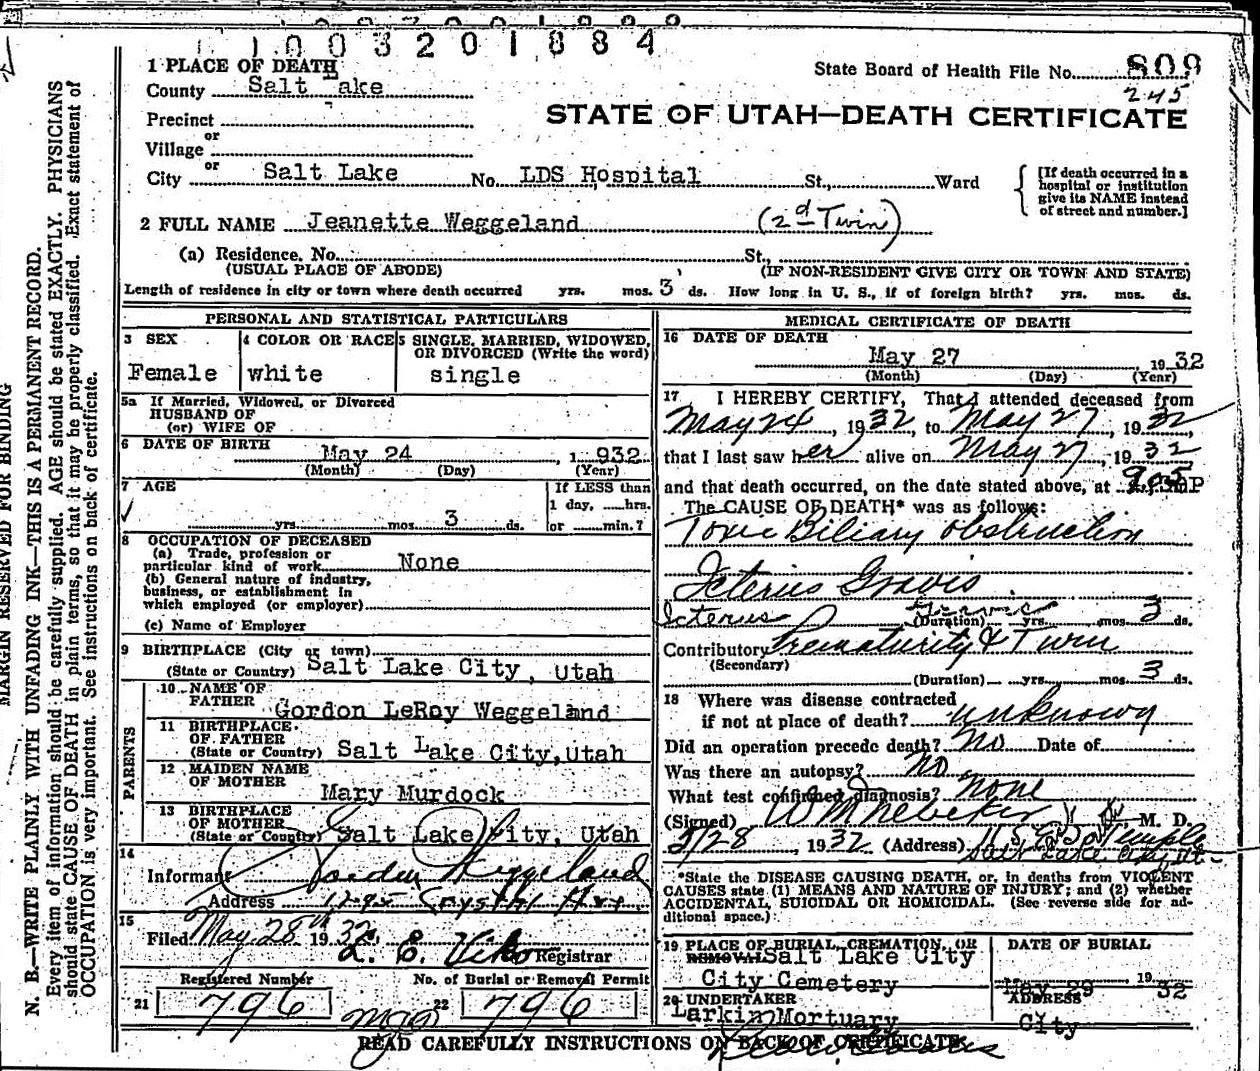 1003201884
1 PLACE OF DEATH
State Board of Health File No. 809
245
County Salt Lake
STATE OF UTAH—DEATH CERTIFICATE
Precinct
or
Village
or
City Salt Lake No. LDS Hospital St., Ward
[If death occurred in a
hospital or institution
give its NAME instead
of street and number.]
2 FULL NAME Jeanette Weggeland (2d Twin)
(a) Residence. No. St.,
(USUAL PLACE OF ABODE) (IF NON-RESIDENT GIVE CITY OR TOWN AND STATE)
Length of residence in city or town where death occurred yrs. mos. 3 ds. How long in U. S., if of foreign birth? yrs. mos. ds.
PERSONAL AND STATISTICAL PARTICULARS
3 SEX
Female
4 COLOR OR RACE
white
5 SINGLE, MARRIED, WIDOWED,
OR DIVORCED (Write the word)
single
5a If Married, Widowed, or Divorced
HUSBAND OF
(or) WIFE OF
6 DATE OF BIRTH
May 24, 1932
(Month) (Day) (Year)
7 AGE
yrs. mos. 3 ds.
If LESS than
1 day, hrs.
or min.?
8 OCCUPATION OF DECEASED
(a) Trade, profession or
particular kind of work None
(b) General nature of industry,
business, or establishment in
which employed (or employer)
(c) Name of Employer
9 BIRTHPLACE (City or town)
(State or Country) Salt Lake City, Utah
PARENTS
10 NAME OF
FATHER Gordon LeRoy Weggeland
11 BIRTHPLACE
OF FATHER
(State or Country) Salt Lake City, Utah
12 MAIDEN NAME
OF MOTHER
Mary Murdock
13 BIRTHPLACE
OF MOTHER
(State or Country) Salt Lake City, Utah
14
Informant Gordon Weggeland
Address Crystal Ave,
15
Filed May 28th 1932 Registrar
Registered Number No. of Burial or Removal Permit
21 796 22 796
MEDICAL CERTIFICATE OF DEATH
16 DATE OF DEATH
May 27 1932
(Month) (Day) (Year)
17 I HEREBY CERTIFY, That I attended deceased from
May 24, 1932, to May 27, 1932,
that I last saw her alive on May 27, 1932
and that death occurred, on the date stated above, at 9:05 P
The CAUSE OF DEATH* was as follows:
Toxic Biliary obstruction
Icterus Gravis
Icterus Gravis
(Duration) yrs. mos. 3 ds.
Contributory Prematurity & Twin
(Secondary)
(Duration) yrs. mos. 3 ds.
18 Where was disease contracted
if not at place of death? unknown
Did an operation precede death? no Date of
Was there an autopsy? no
What test confirmed diagnosis? none
(Signed) W M Nebeker M. D.
5/28, 1932 (Address) So Temple
Salt Lake City Ut
*State the DISEASE CAUSING DEATH, or, in deaths from VIOLENT
CAUSES state (1) MEANS AND NATURE OF INJURY; and (2) whether
ACCIDENTAL, SUICIDAL OR HOMICIDAL. (See reverse side for ad-
ditional space.)
19 PLACE OF BURIAL, CREMATION, OR
REMOVAL Salt Lake City
City Cemetery
DATE OF BURIAL
May 29 1932
20 UNDERTAKER
Larkin Mortuary
ADDRESS
City
READ CAREFULLY INSTRUCTIONS ON BACK OF CERTIFICATE
MARGIN RESERVED FOR BINDING
N. B.—WRITE PLAINLY WITH UNFADING INK—THIS IS A PERMANENT RECORD.
Every item of information should be carefully supplied. AGE should be stated EXACTLY. PHYSICIANS
should state CAUSE OF DEATH in plain terms, so that it may be properly classified. Exact statement of
OCCUPATION is very important. See instructions on back of certificate.